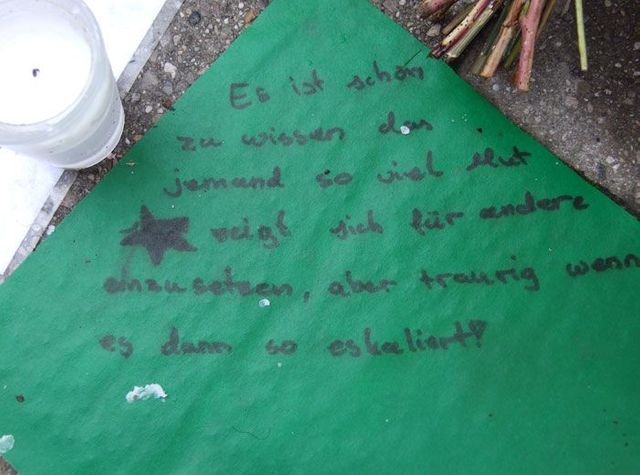 Es ist schön
zu wissen das
jemand so viel Mut
zeigt sich für andere
einzusetzen, aber traurig wenn
es dann so eskaliert!